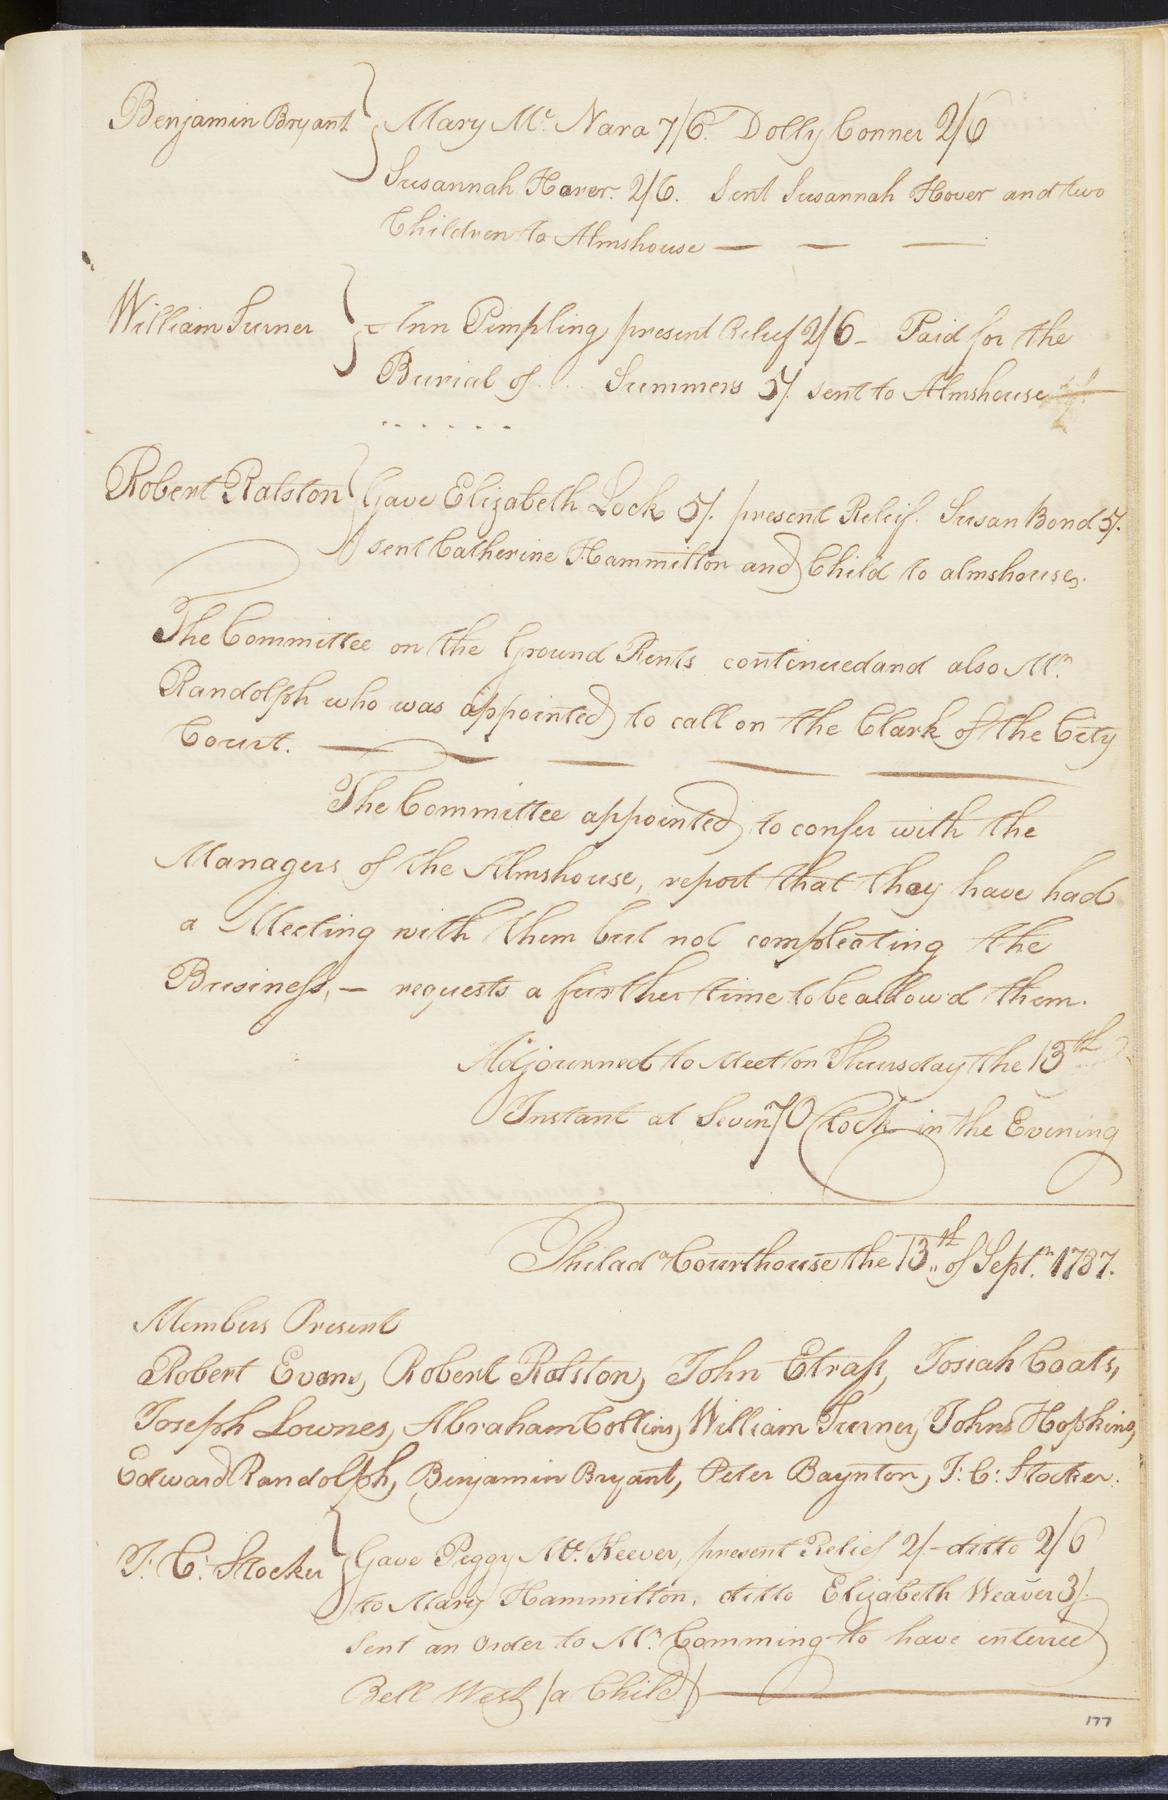 Benjamin Bryant } Mary Mc. Nara 7/6. Dolly Conner 2/6
Susannah Haver. 2/6. Sent Susannah Hover and two
Children to Almshouse — — —
William Turner } Ann Pimpling present Relief 2/6 – Paid for the
Burial of . . . Summers 5/. sent to Almshouse
. . . . . .
Robert Ralston } Gave Elizabeth Lock 5/. present Releif. Susan Bond 5/.
sent Catherine Hammilton and Child to almshouse.
The Committee on the Ground Rents continued and also Mr.
Randolph who was appointed to call on the Clark of the City
Court. — — — — —
The Committee appointed to confer with the
Managers of the Almshouse, report that they have had
a Meeting with them but not compleating the
Business, — requests a further time to be allow'd them.
Adjourned to Meet on Thursday the 13th
Instant at Seven O Clock in the Evening
Philada. Courthouse the 13th of Septr. 1787.
Members Present
Robert Evans, Robert Ralston, John Strass, Josiah Coats,
Joseph Lownes, Abraham Collins, William Turner, Johns Hopkins,
Edward Randolph, Benjamin Bryant, Peter Baynton, J: C: Stocker.
J: C: Stocker } Gave Peggy Mc. Keever, present Relief 2/– ditto 2/6
to Mary Hammilton, ditto Elizabeth Weaver 3/.
Sent an Order to Mr. Comming to have interred
Bell West /a Child/ —
177